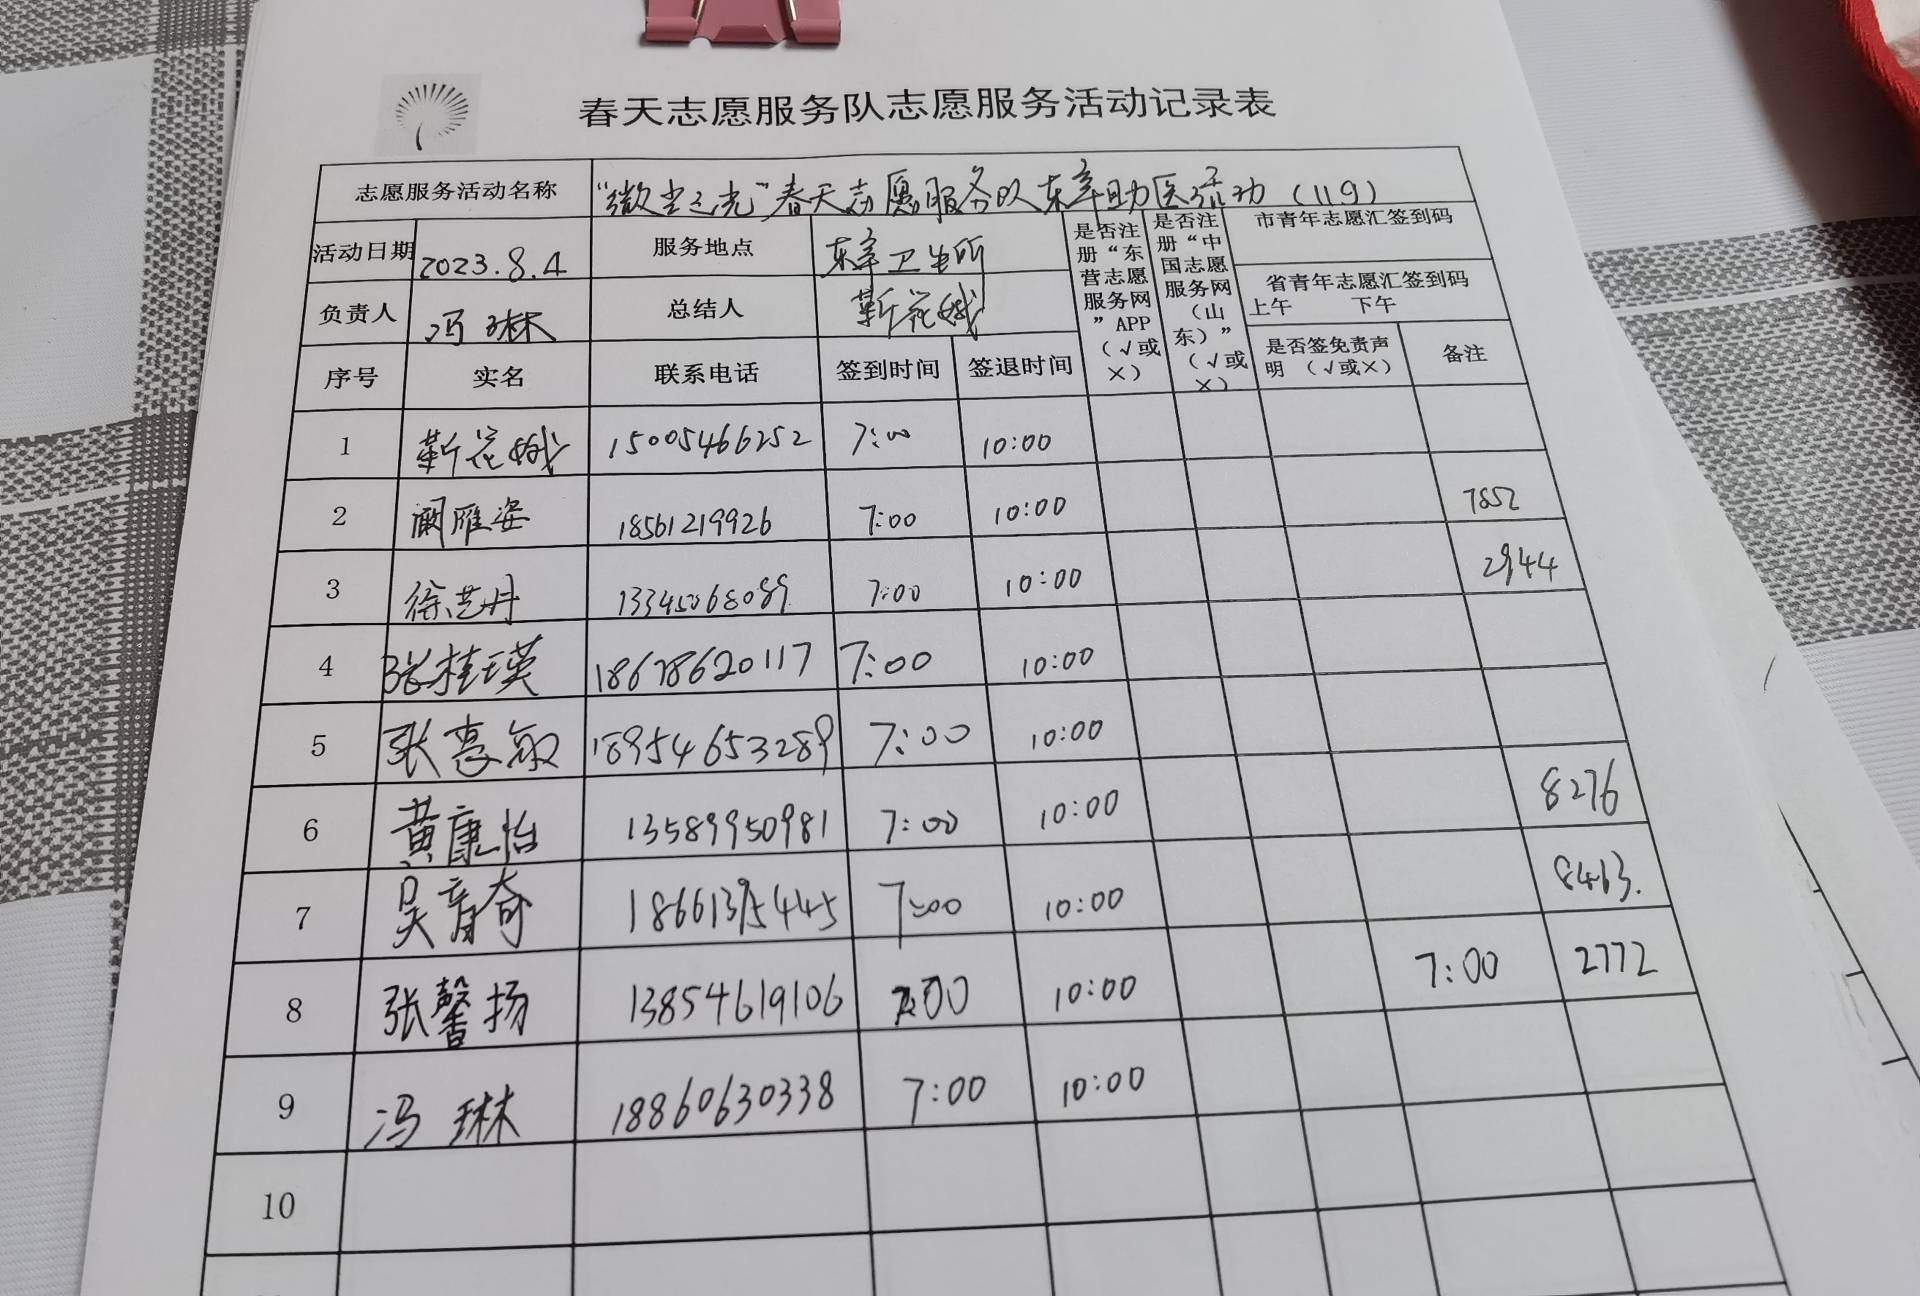 春天志愿服务队志愿服务活动记录表
志愿服务活动名称 “微尘之光”春天志愿服务队东辛助医活动（119）
活动日期 2023.8.4 服务地点 东辛卫生所
负责人 冯琳 总结人 靳花娥
是否注册“东营志愿服务网”APP（√或×）
是否注册“中国志愿服务网（山东）”（√或×）
市青年志愿汇签到码
省青年志愿汇签到码
上午 下午
序号 实名 联系电话 签到时间 签退时间 是否签免责声明（√或×） 备注
1 靳花娥 15005466252 7:00 10:00
2 阚雁姿 18561219926 7:00 10:00 7852
3 徐艺丹 13345068089 7:00 10:00 2944
4 张桂瑛 18678620117 7:00 10:00
5 张惠敏 18954653289 7:00 10:00
6 黄康怡 13589950981 7:00 10:00 8276
7 吴育奇 18661395445 7:00 10:00 8463.
8 张馨扬 13854619106 7:00 10:00 7:00 2772
9 冯琳 18860630338 7:00 10:00
10